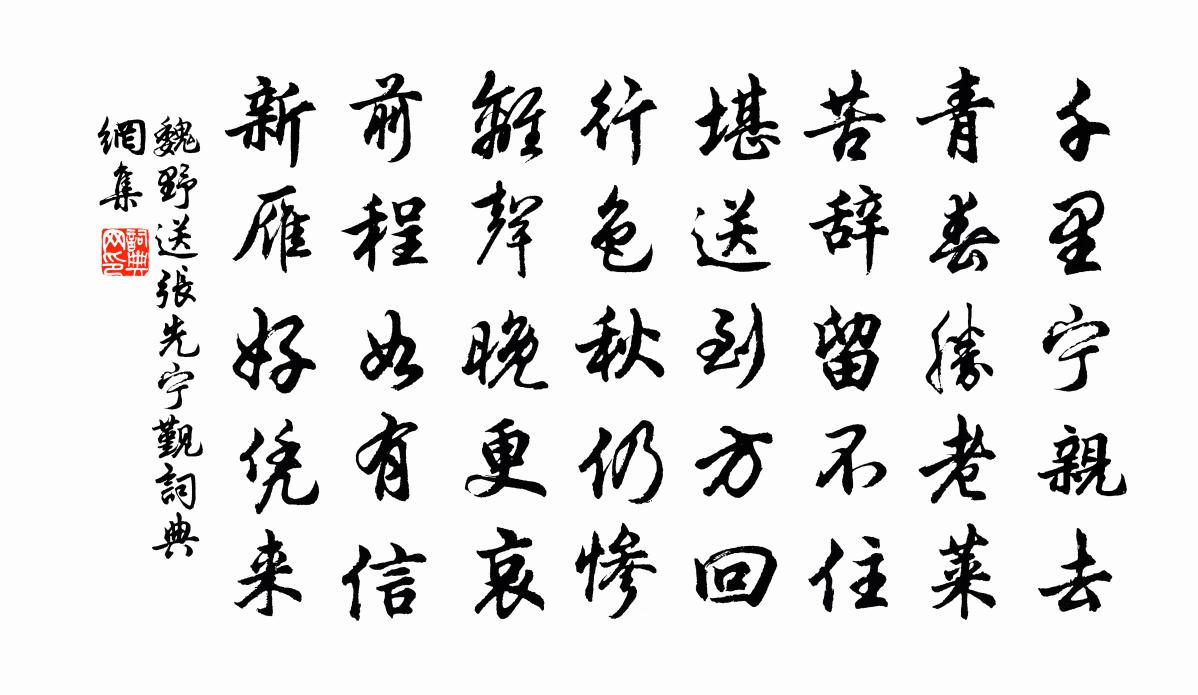 千里宁親去
青春勝老萊
苦辞留不住
堪送到方回
行色秋仍慘
離聲晚更哀
前程如有信
新雁好凭来
魏野送張先宁覲詞典
網集
詞典
网印